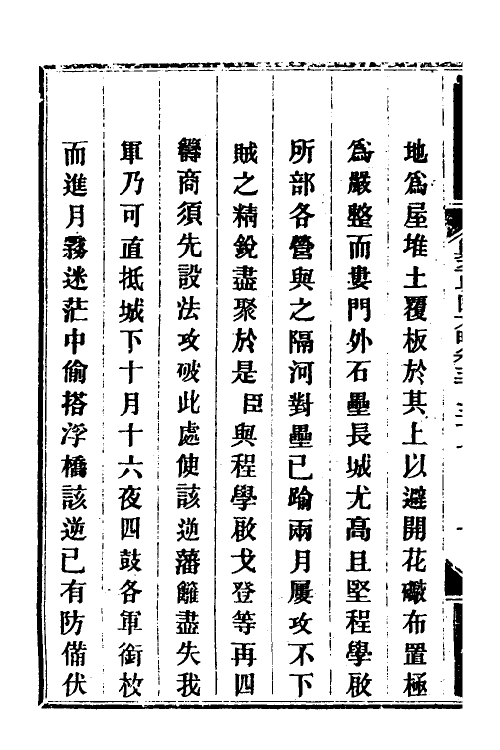 地爲屋堆土覆板於其上以避開花礮布置極
爲嚴整而婁門外石壘長城尤高且堅程學啟
所部各營與之隔河對壘已踰兩月屢攻不下
賊之精銳盡聚於是臣與程學啟戈登等再四
籌商須先設法攻破此處使該逆藩籬盡失我
軍乃可直抵城下十月十六夜四鼓各軍銜枚
而進月霧迷茫中偷搭浮橋該逆已有防備伏